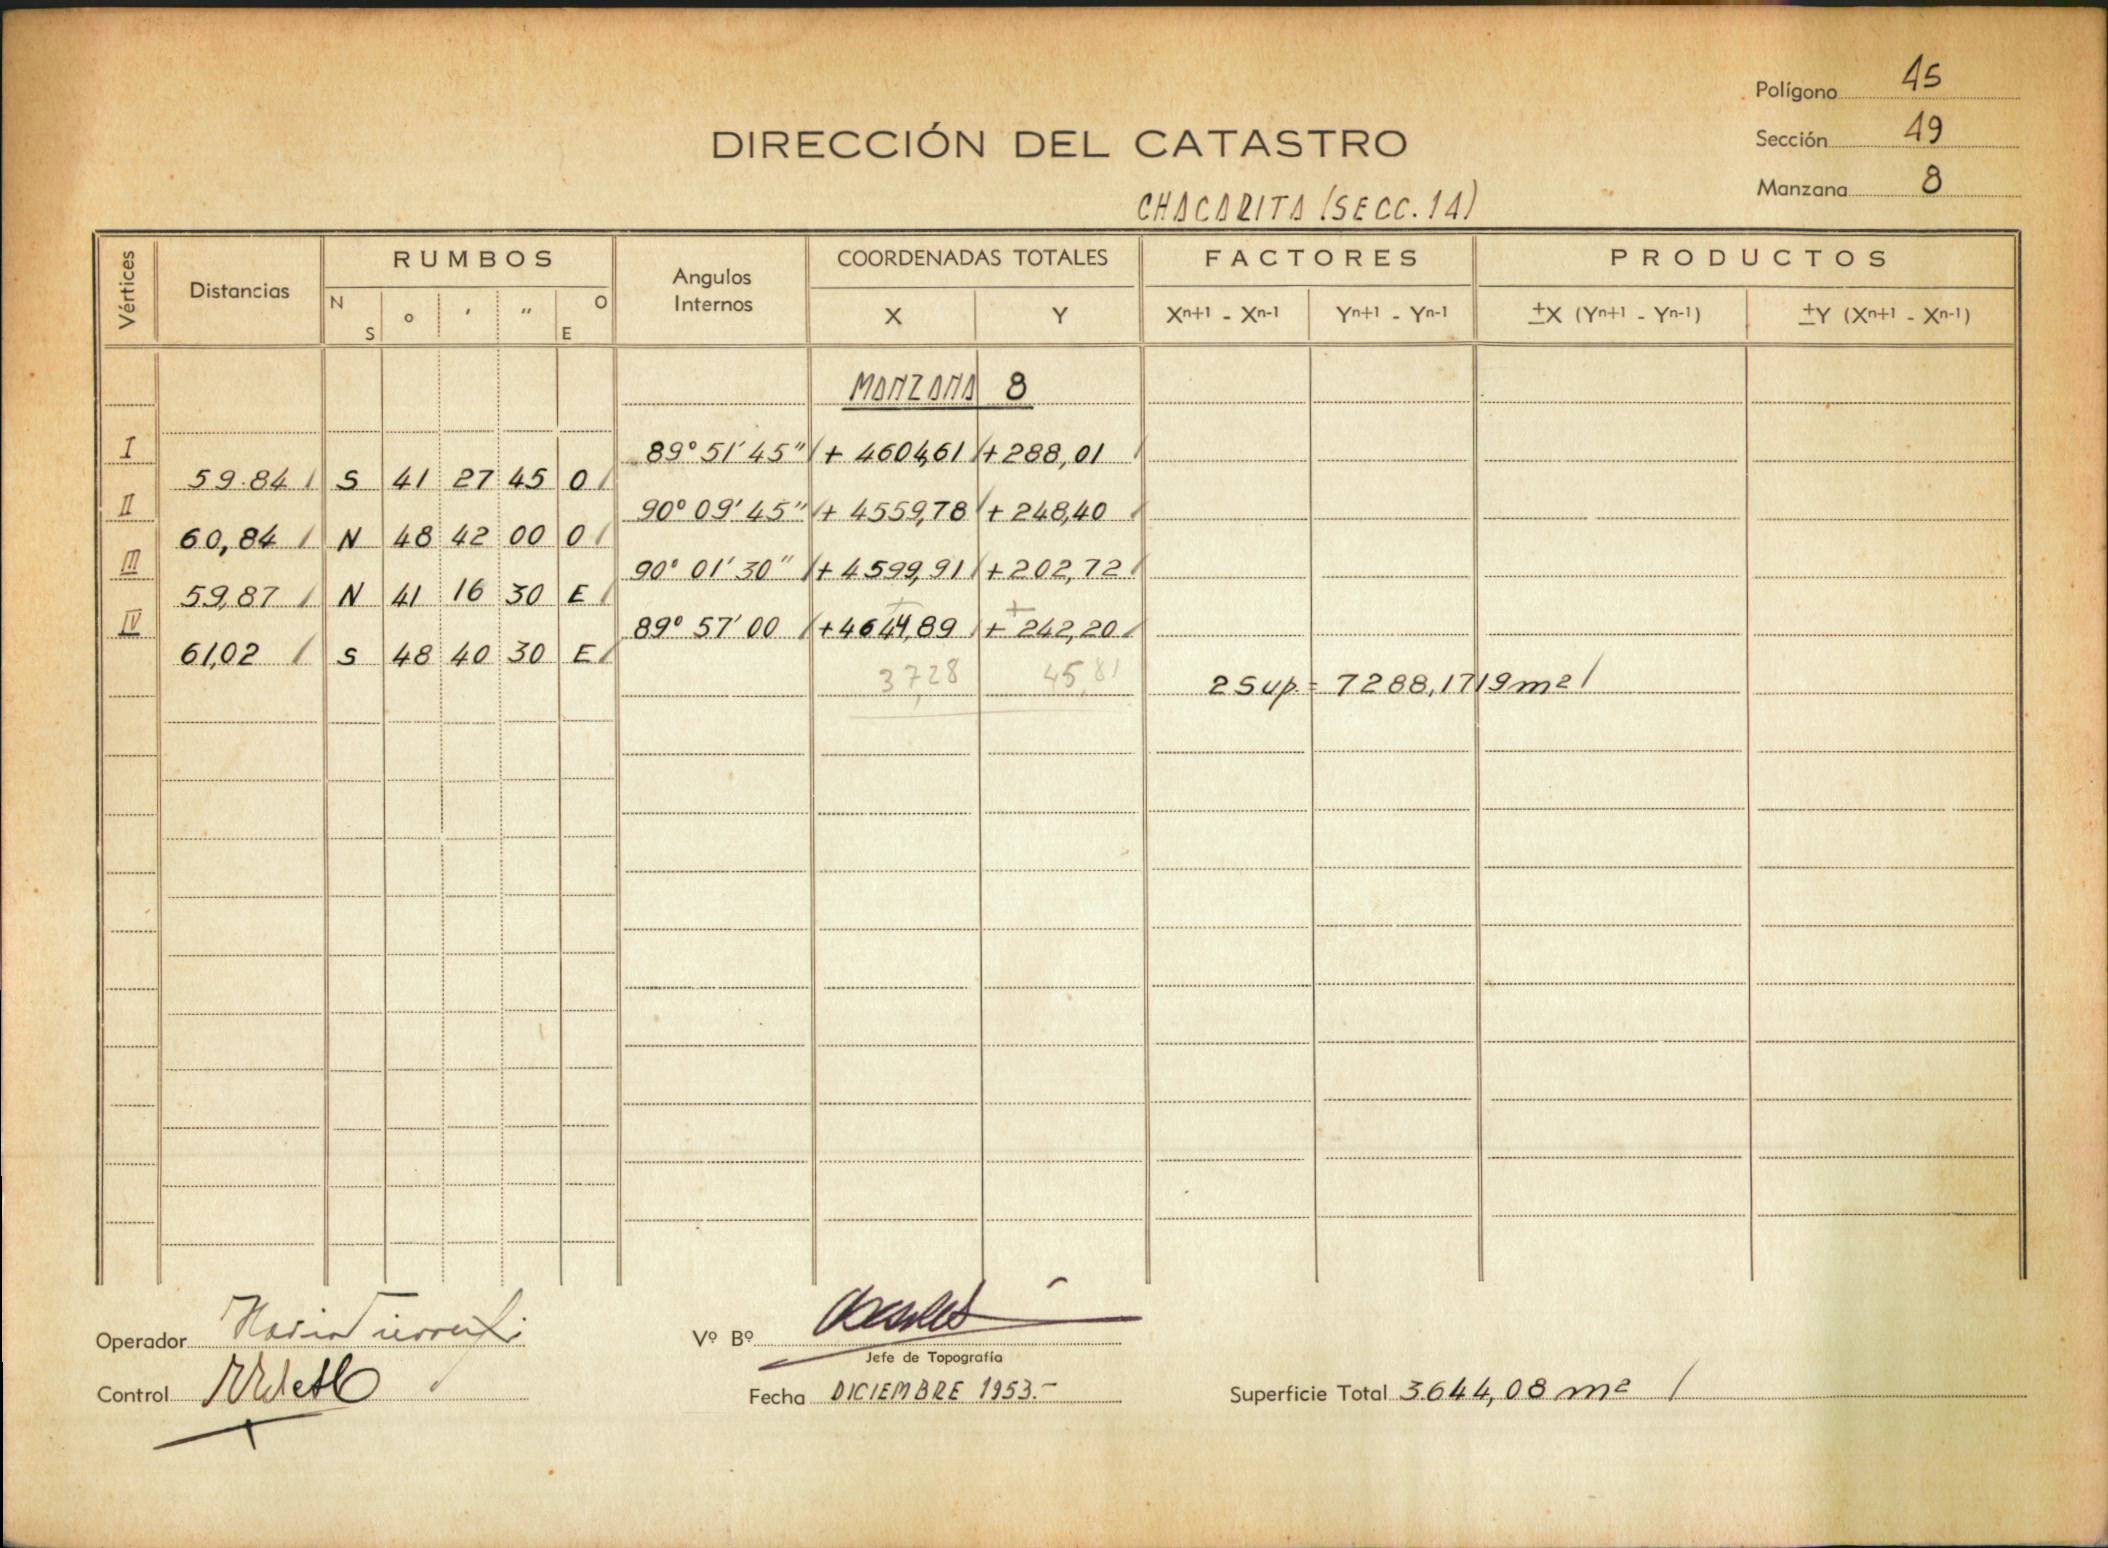 Polígono 45
Sección 49
Manzana 8
DIRECCIÓN DEL CATASTRO
CHACARITA (SECC. 14)
Vértices Distancias RUMBOS Angulos Internos COORDENADAS TOTALES FACTORES PRODUCTOS
N S ° ' " O E X Y Xn+1 - Xn-1 Yn+1 - Yn-1 ±X (Yn+1 - Yn-1) ±Y (Xn+1 - Xn-1)
MANZANA 8
I 89° 51' 45" + 4604,61 + 288,01
59.84 S 41 27 45 O
II 90° 09' 45" + 4559,78 + 248,40
60,84 N 48 42 00 O
III 90° 01' 30" + 4599,91 + 202,72
59,87 N 41 16 30 E
IV 89° 57' 00 + 4644,89 + 242,20
61,02 S 48 40 30 E
37,28 45,81
2 Sup. = 7288,1719 m2
Operador
Vº Bº
Jefe de Topografía
Control
Fecha DICIEMBRE 1953.-
Superficie Total 3.644,08 m2